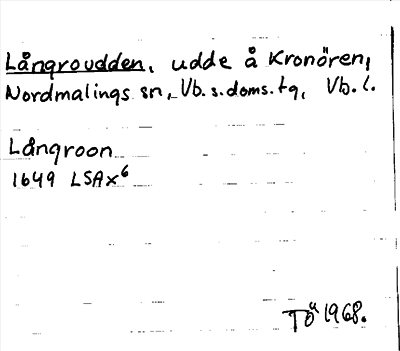 Långroudden, udde å Kronören,
Nordmalings sn, Vb. s. doms. tg, Vb. l.
Långroon
1649 LSAx6
TÖ 1968.